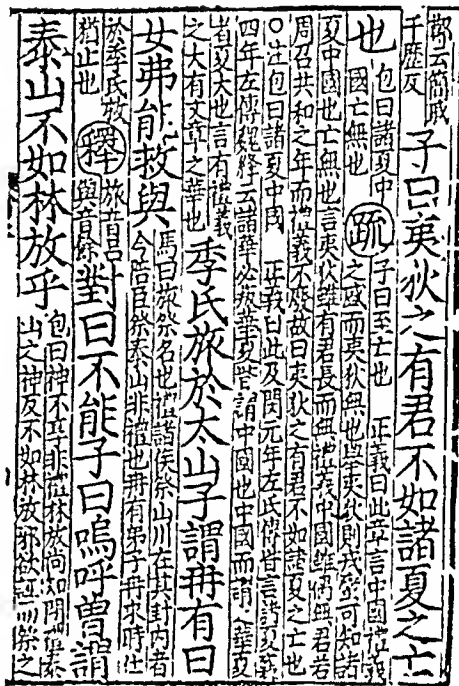 鄭云簡戚
千歷反
子曰夷狄之有君不如諸夏之亡
也
包曰諸夏中
國亡無也
疏
子曰至亡也　正義曰此章言中國禮義
之盛而夷狄無也舉夷狄則戎蠻可知諸
夏中國也亡無也言夷狄雖有君長而無禮義中國雖偶無君若
周召共和之年而禮義不廢故曰夷狄之有君不如諸夏之亡也
○注包曰諸夏中國　正義曰此及閔元年左氏傳皆言諸夏襄
四年左傳魏絳云諸華必叛華夏皆謂中國也中國而謂之華夏
者夏大也言有禮義
之大有文章之華也
季氏旅於太山子謂冉有曰
女弗能救與
馬曰旅祭名也禮諸侯祭山川在其封內者
今陪臣祭泰山非禮也冉有弟子冉求時仕
於季氏救
猶止也
釋
旅音呂
與音餘
對曰不能子曰嗚呼曾謂
泰山不如林放乎
包曰神不享非禮林放尚知問禮泰
山之神反不如林放邪欲誣而祭之